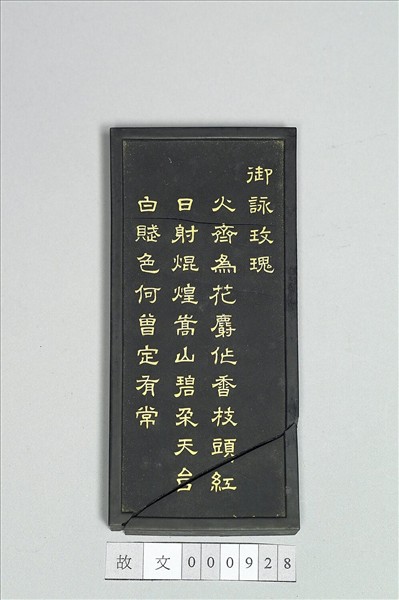 御詠玫瑰
火齊為花麝作香枝頭紅
日射焜煌嵩山碧朶天台
白賦色何曾定有常
故文000928